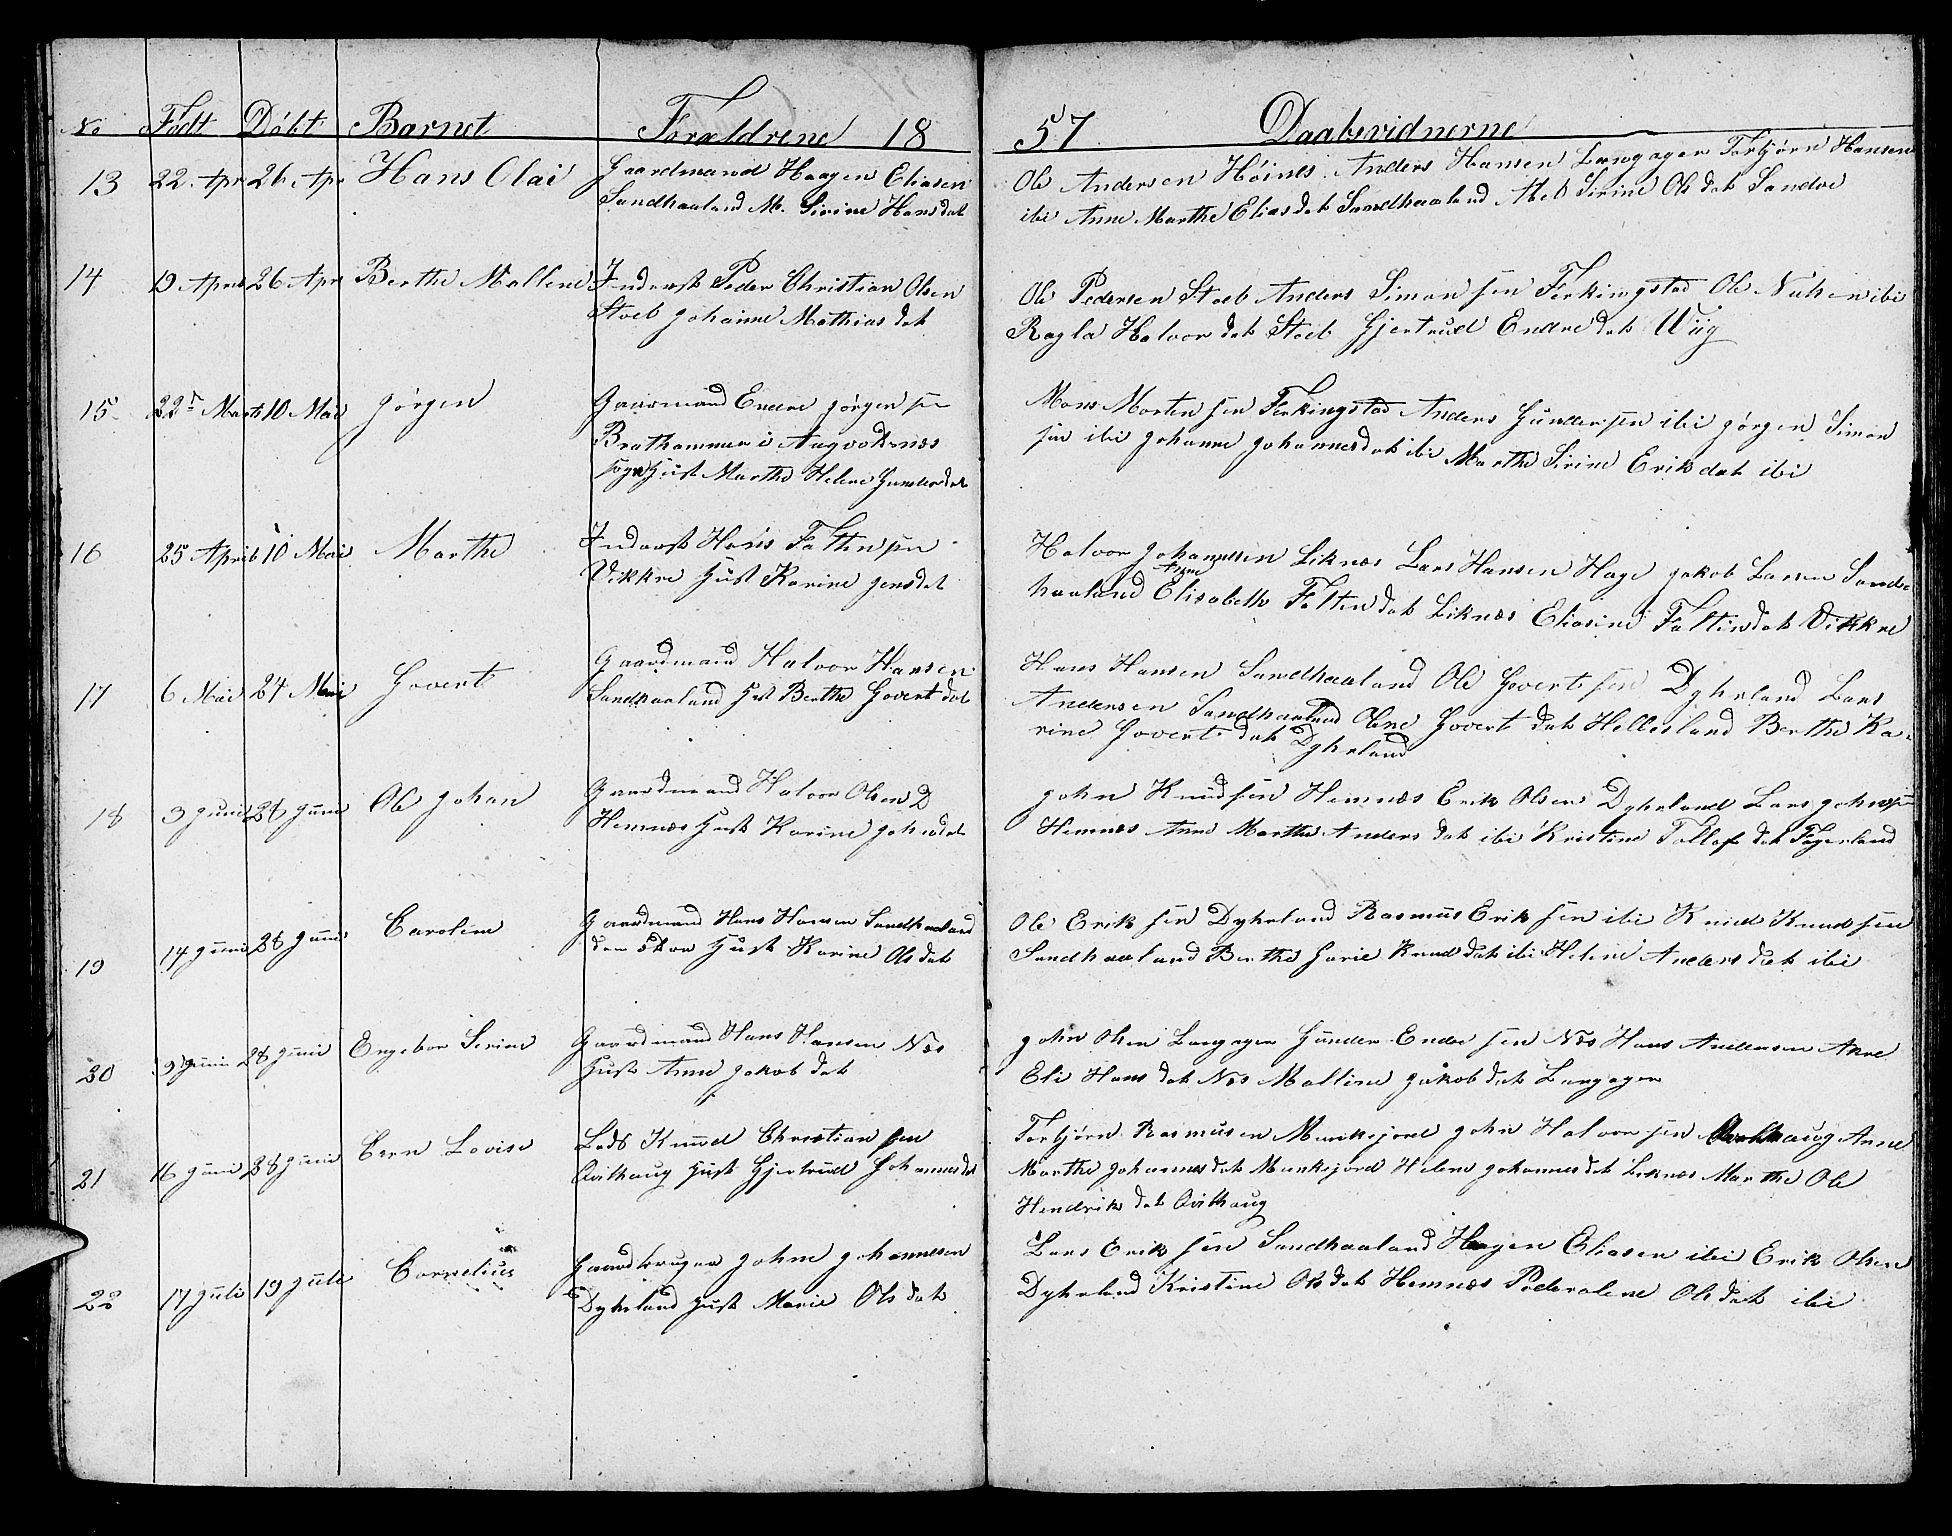 No Født Döbt Barnet Forældrene 18 57 Daabevidnerne
13 22 Apr 26 Apr Hans Olai Gaardmand Haagen Eliasen
Sandhaaland M. Sirine Hansdat
Ole Andersen Höines Anders Hansen Langager Torbjørn Hansen
ibi Anne Marthe Eliasdat Sandhaaland Abel Sirine Olsdat Sandve
14 19 April 26 Apr Berthe Malline Inderst Peder Christian Olsen
Stoeb Johanne Mathiasdat
Ole Pedersen Stoeb Anders Simonsen Ferkingstad Ole ibi
Ragla Halvordat Stoeb Gjertrud Endredat Wiig
15 22 Marts 10 Mai Jörgen Gaarmand Endre Jörgensen
Brathammer i Augvoldsnæs
sogn Hust Marthe Helene Gunderdat
Mons Mortensen Ferkingstad Anders Gundersen ibi Jörgen Simon
sen ibi Johanne Johannesdat ibi Marthe Sirine Erikdat ibi
16 25 April 10 Mai Marthe Inderst Hans Faltinsen
Vikkre Hust Karine Jensdat
Halvor Johannesen Liknæs Lars Hansen Hage Jakob Larsen Sand
haaland Anne Elisabeth Faltindat Liknæs Eliasine Faltindat Vikkre
17 6 Mai 24 Mai Govert Gaardmand Halvor Hansen
Sandhaaland Hst Berthe Govertdat
Hans Hansen Sandhaaland Ole Govertsen Dyhrland Lars
Andersen Sandhaaland Oline Govertdat Hellesland Berthe Ka-
rine Govertdat Dyhrland
18 3 Juni 28 Juni Ole Johan Gaardmand Halvor Olsen D
Hemnæs Hust Karine Johndat
John Knudsen Hemnæs Erik Olsen Dyhrland Lars Johnsen
Hemnæs Anne Marthe Andersdat ibi Kristine Tollefdat Fagerland
19 14 Juni 28 Juni Caroline Gaardmand Hans Hansen Sandhaaland
den Hust Karine Olsdat
Ole Eriksen Dyhrland Rasmus Eriksen ibi Knud Knudsen
Sandhaaland Berthe Knuddat ibi Helene Andersdat ibi
20 9 Juni 28 Juni Engebor Serine Gaardmand Hans Hansen Næs
Hust Anne Jakobdat
John Olsen Langager Gunder Endresen Næs Hans Andersen
Eli Hansdat Næs Malline Jakobdat Langager
21 16 Juni 28 Juni Lovise Lods Knud Christiansen
Qvilhaug Hust Gjertrud Johannesdat
Torbjørn Rasmusen Munkejord John Halvorsen Qvilhaug Anne
Marthe Johannesdat Munkejord Helene Johannesdat Liknæs Marthe Ole
Hendrikdat Qvilhaug
22 17 Juli 19 Juli Cornelius Gaardbruger John Johannesen
Dyhrland Hust Marie Olsdat
Lars Eriksen Sandhaaland Hagen Eliasen ibi Erik Olsen
Dyhrland Kristine Olsdat Hemnæs Pederaline Olsdat ibi